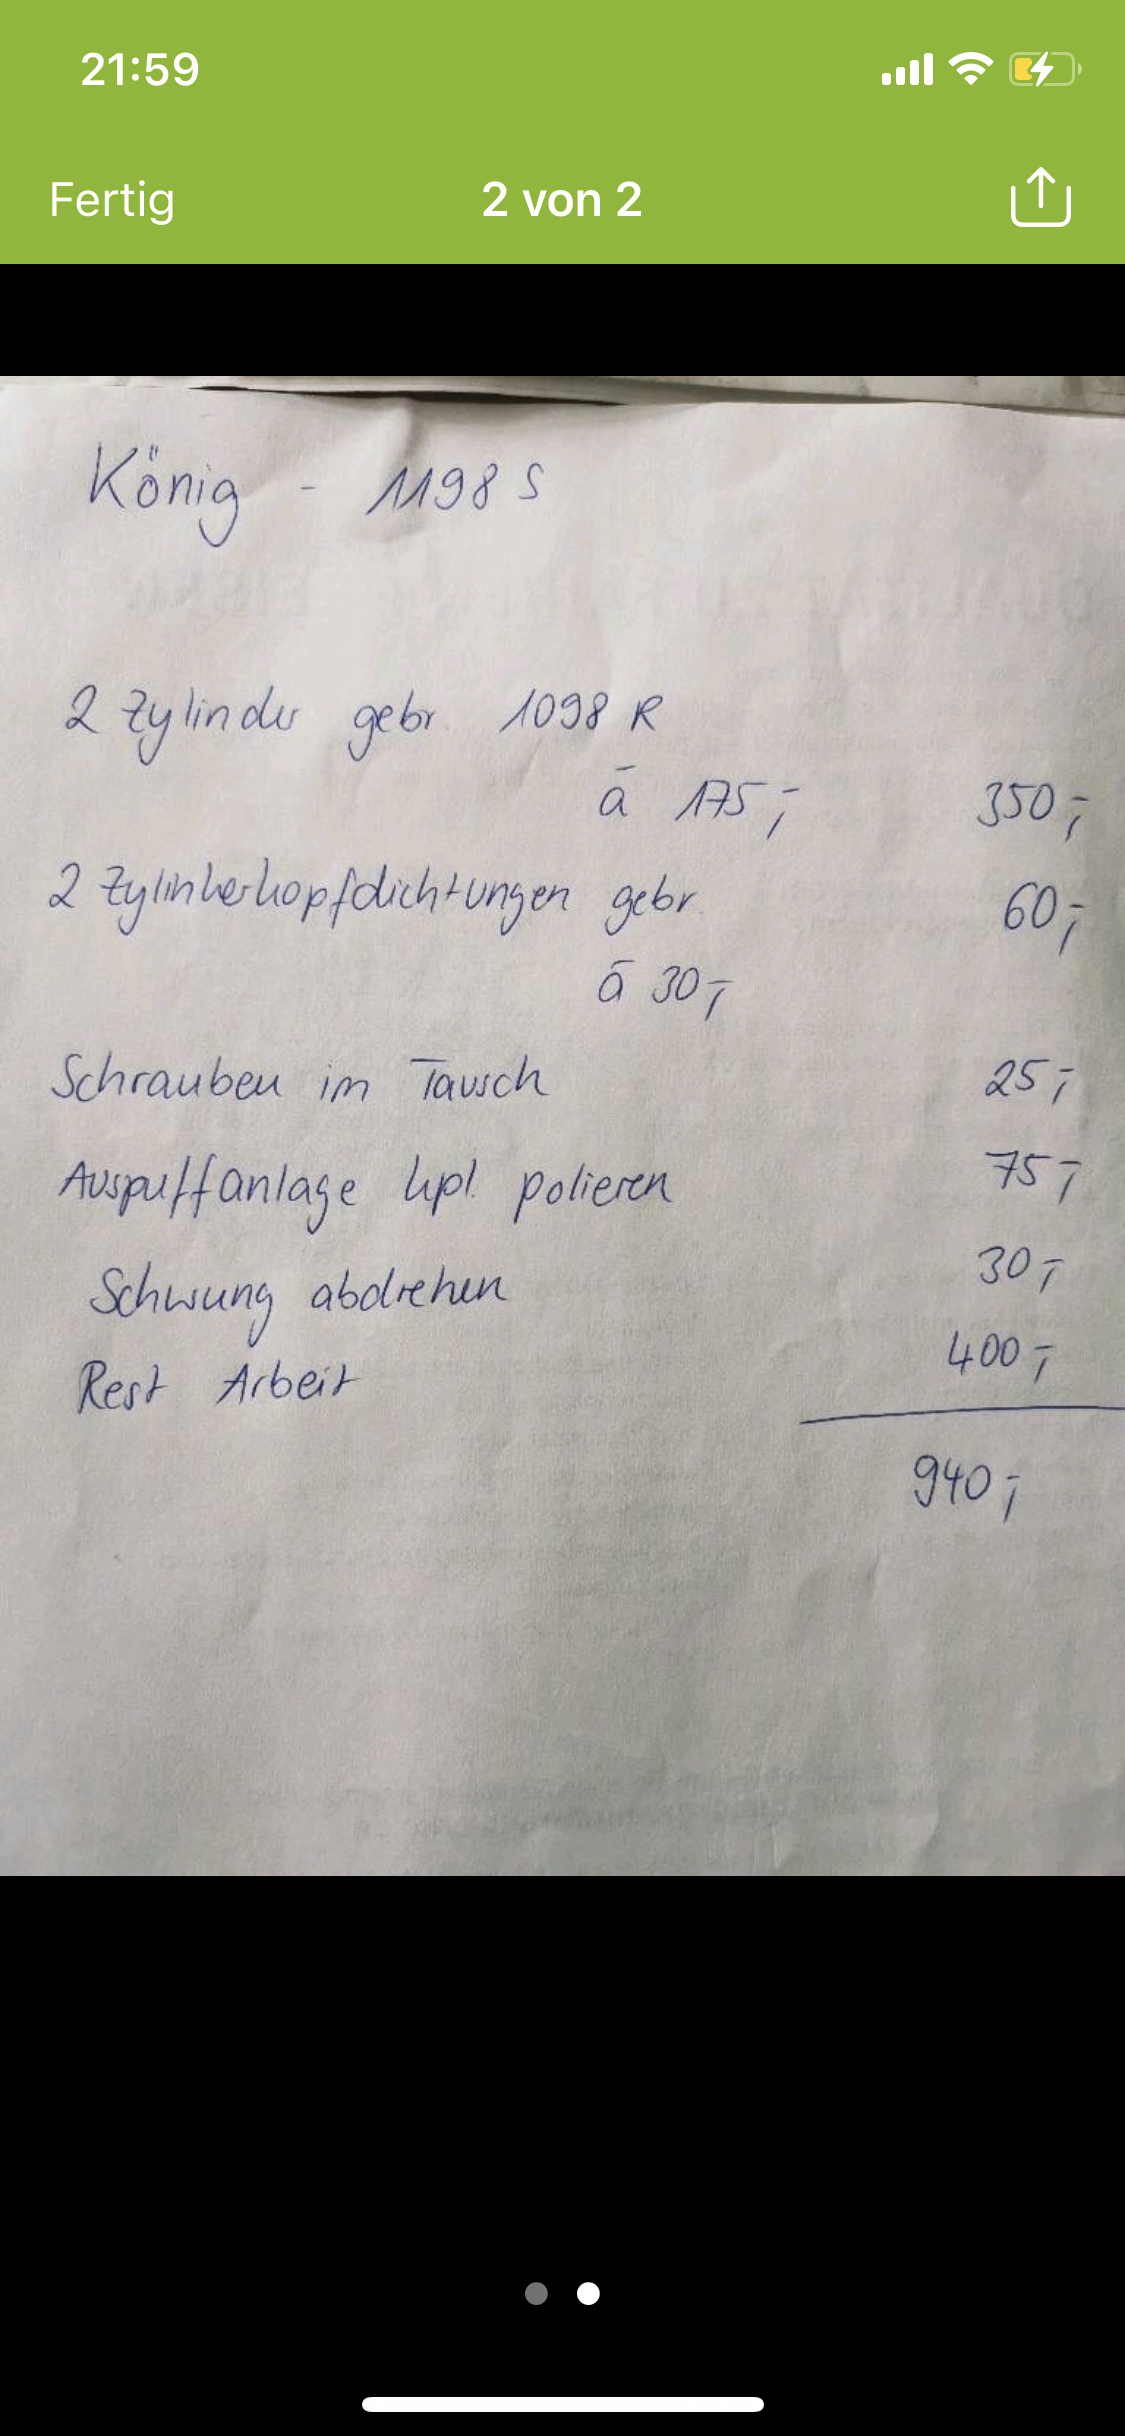 21:59
Fertig 2 von 2
König - 1198 S
2 Zylinder gebr. 1098 R
ā 175,- 350,-
2 Zylinkerkopfdichtungen gebr. 60,-
ā 30,-
Schrauben im Tausch 25,-
Auspuffanlage kpl. polieren 75,-
Schwung abdrehen 30,-
Rest Arbeit 400,-
940,-